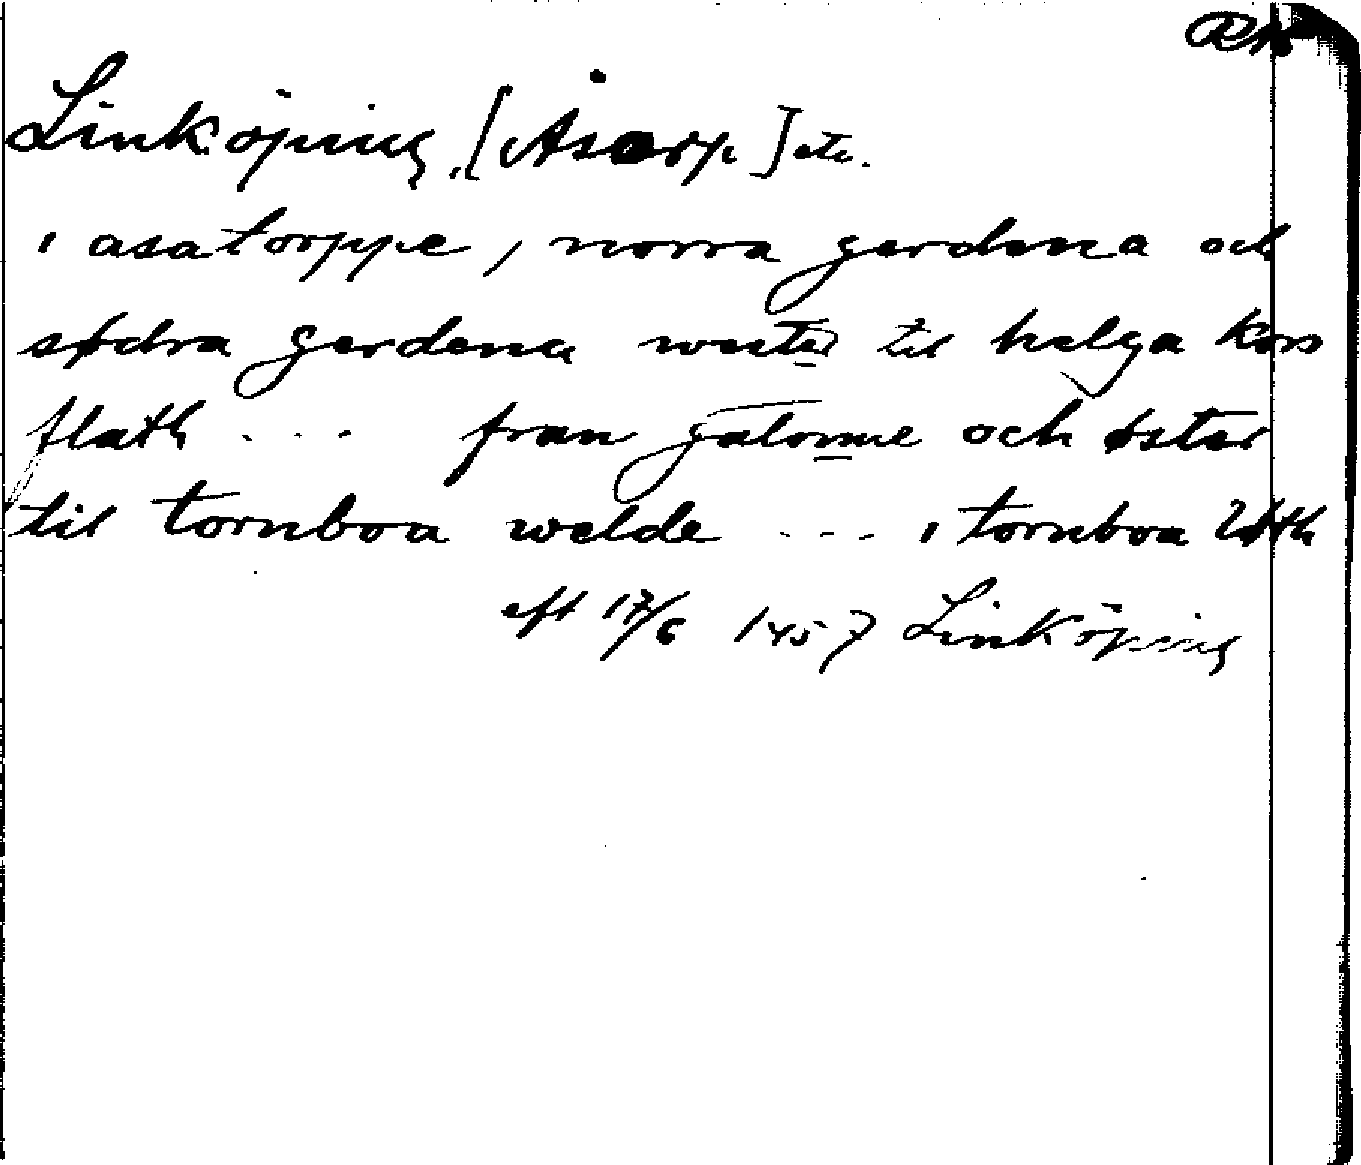 Linköping, [Åsarp] etc.
i asatorppe, norra gerdena och
sødra gerdena wester til helga kors
flath ... fran galonne och øster
til tornboa welde ... i tornboa
eft 17/6 1457 Linköping